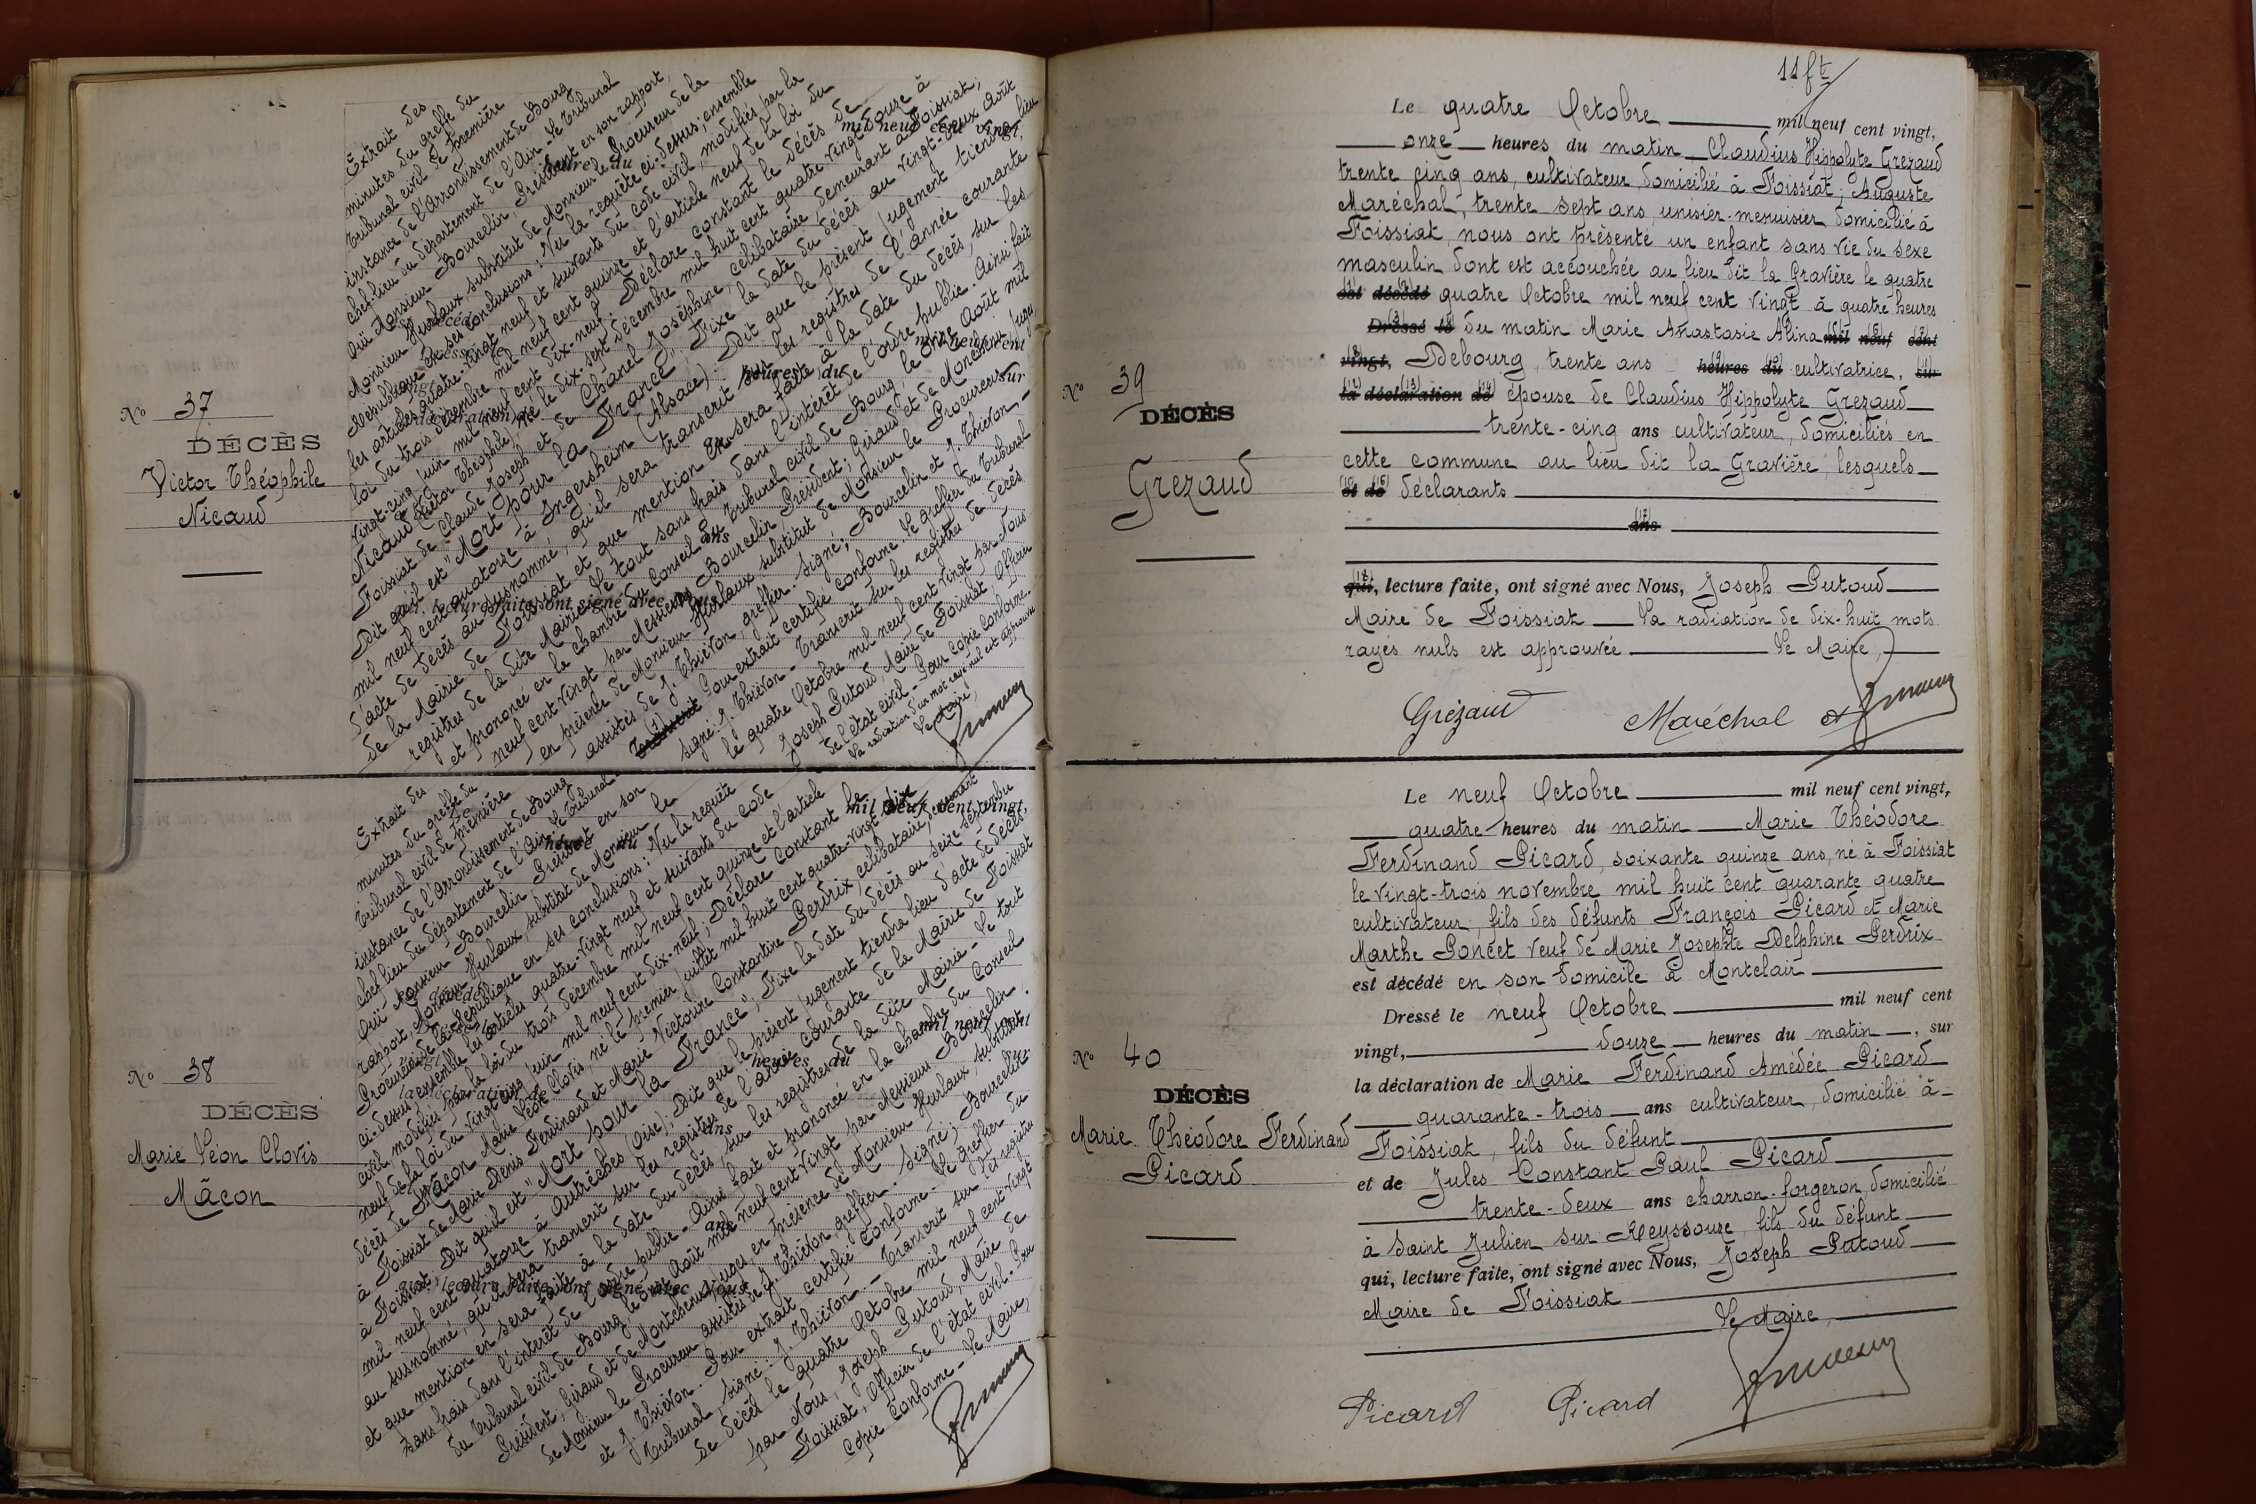 Extrait des
minutes du greffe du
Tribunal civil de première
instance de l'Arrondissement de Bourg
chef-lieu du département de l'Ain - Le Tribunal
Ouï Monsieur Bourcelin, Président en son rapport,
Monsieur Hurlaux, substitut de Monsieur le Procureur de la
République en ses conclusions: Vu la requête ci-dessus; ensemble
les articles quatre-vingt neuf et suivants du code civil, modifiés par la
loi du trois décembre mil neuf cent quinze et l'article neuf de la loi du
vingt-cinq juin mil neuf cent dix-neuf; Déclare constant le décès de
Nicaud Victor Théophile, né le dix-sept décembre mil huit cent quatre-vingt-douze à
Foissiat de Claude Joseph et de Chanel Joséphine, célibataire demeurant à Foissiat;
Dit qu'il est "Mort pour la France", Fixe la date du décès au vingt-deux Août
mil neuf cent quatorze à Ingersheim (Alsace). Dit que le présent jugement tiendra lieu
d'acte de décès au susnommé, qu'il sera transcrit sur les registres de l'année courante
de la Mairie de Foissiat et que mention en sera faite à la date du décès, sur les
registres de la dite Mairie. Le tout sans frais dans l'intérêt de l'ordre public. Ainsi fait
et prononcé en la chambre du Conseil du Tribunal civil de Bourg, le onze Août mil
neuf cent vingt par Messieurs Bourcelin Président; Giraud et de Montchenu, juges
en présence de Monsieur Hurlaux substitut de Monsieur le Procureur
assistés de J. Thiévon, greffier. Signé; Bourcelin et J. Thiévon,
transcrit Pour extrait certifié conforme Le greffier du Tribunal
signé: J. Thiévon - Transcrit sur les registres de décès
le quatre Octobre mil neuf cent vingt par Nous
Joseph Putoud, Maire de Foissiat Officier
de l'état civil - Pour copie conforme.
La radiation d'un mot rayé nul est approuvée
Le Maire,
No 37
DÉCÈS
Victor Théophile
Nicaud
Extrait des
minutes du greffe du
Tribunal civil de première
instance de l'Arrondissement de Bourg
chef lieu du département de l'Ain, Le Tribunal
Ouï Monsieur Bourcelin, Président en son
rapport, Monsieur Hurlaux, substitut de Monsieur le
Procureur de la République en ses conclusions: Vu la requête
ci-dessus, ensemble les articles quatre-vingt neuf et suivants du code
civil, modifiés par la loi du trois décembre mil neuf cent quinze et l'article
neuf de la loi du vingt cinq juin mil neuf cent dix-neuf, Déclare constant le
décès de Mâcon Marie Léon Clovis, né le premier juillet mil huit cent quatre-vingt dix
à Foissiat de Marie Denis Ferdinand et Marie Victorine Constantine Perdrix célibataire, demeurant
à Foissiat, Dit qu'il est "Mort pour la France", Fixe la date du décès au seize septembre
mil neuf cent quatorze à Autrêches (Oise); Dit que le présent jugement tiendra lieu d'acte de décès
au susnommé, qu'il sera transcrit sur les registres de l'année courante de la Mairie de Foissiat
et que mention en sera faite à la date du décès, sur les registres de la dite Mairie - Le tout
sans frais dans l'intérêt de l'ordre public - Ainsi fait et prononcé en la chambre du Conseil
du Tribunal civil de Bourg, le onze Août mil neuf cent vingt par Messieurs Bourcelin
Président, Giraud et de Montchenu, juges en présence de Monsieur Hurlaux, substitut
de Monsieur le Procureur assistés de J. Thiévon, greffier. Signé; Bourcelin
et J. Thiévon. Pour extrait certifié conforme - Le greffier du
Tribunal, signé: J. Thiévon - Transcrit sur les registres
de décès le quatre Octobre mil neuf cent vingt
par Nous, Joseph Putoud, Maire de
Foissiat, Officier de l'état civil - Pour
Copie Conforme - Le Maire,
No 38
DÉCÈS
Marie Léon Clovis
Mâcon
11 ft
Le quatre Octobre mil neuf cent vingt,
onze heures du matin Claudius Hippolyte Grezaud
trente cinq ans, cultivateur domicilié à Foissiat; Auguste
Maréchal, trente sept ans, menuisier domicilié à
Foissiat, nous ont présenté un enfant sans vie du sexe
masculin dont est accouchée au lieu dit la Gravière le quatre
est décédé quatre Octobre mil neuf cent vingt à quatre heures
Dressé le du matin Marie Anastasie Alina mil neuf cent
vingt, Debourg, trente ans heures du cultivatrice, sur
la déclaration de épouse de Claudius Hippolyte Grezaud
trente-cinq ans cultivateur, domiciliés en
cette commune au lieu dit la Gravière, lesquels
et de déclarants
ans
qui, lecture faite, ont signé avec Nous, Joseph Putoud
Maire de Foissiat La radiation de dix-huit mots
rayés nuls est approuvée Le Maire,
Grézaud Maréchal A
No 39
DÉCÈS
Grezaud
Le neuf Octobre mil neuf cent vingt,
quatre heures du matin Marie Théodore
Ferdinand Picard, soixante quinze ans, né à Foissiat
le vingt-trois novembre mil huit cent quarante quatre
cultivateur, fils des défunts François Picard et Marie
Marthe Poncet veuf de Marie Josephte Delphine Perdrix
est décédé en son domicile à Montclair
Dressé le neuf Octobre mil neuf cent
vingt, douze heures du matin, sur
la déclaration de Marie Ferdinand Amédée Picard
quarante-trois ans cultivateur, domicilié à
Foissiat, fils du défunt
et de Jules Constant Paul Picard
trente-deux ans charron-forgeron, domicilié
à Saint Julien sur Reyssouze, fils du défunt
qui, lecture faite, ont signé avec Nous, Joseph Putoud
Maire de Foissiat
Le Maire,
Picard Picard
No 40
DÉCÈS
Marie Théodore Ferdinand
Picard